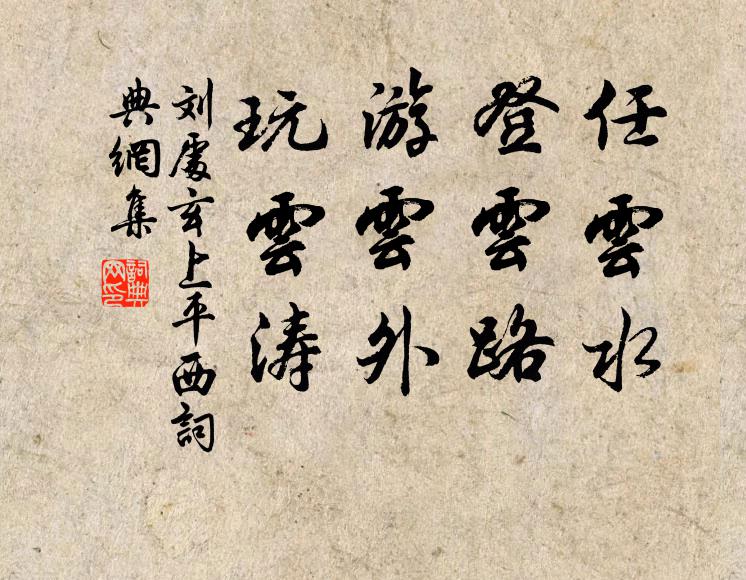 任雲水
登雲路
游雲外
玩雲涛
刘處玄上平西詞
典網集
詞典
网印